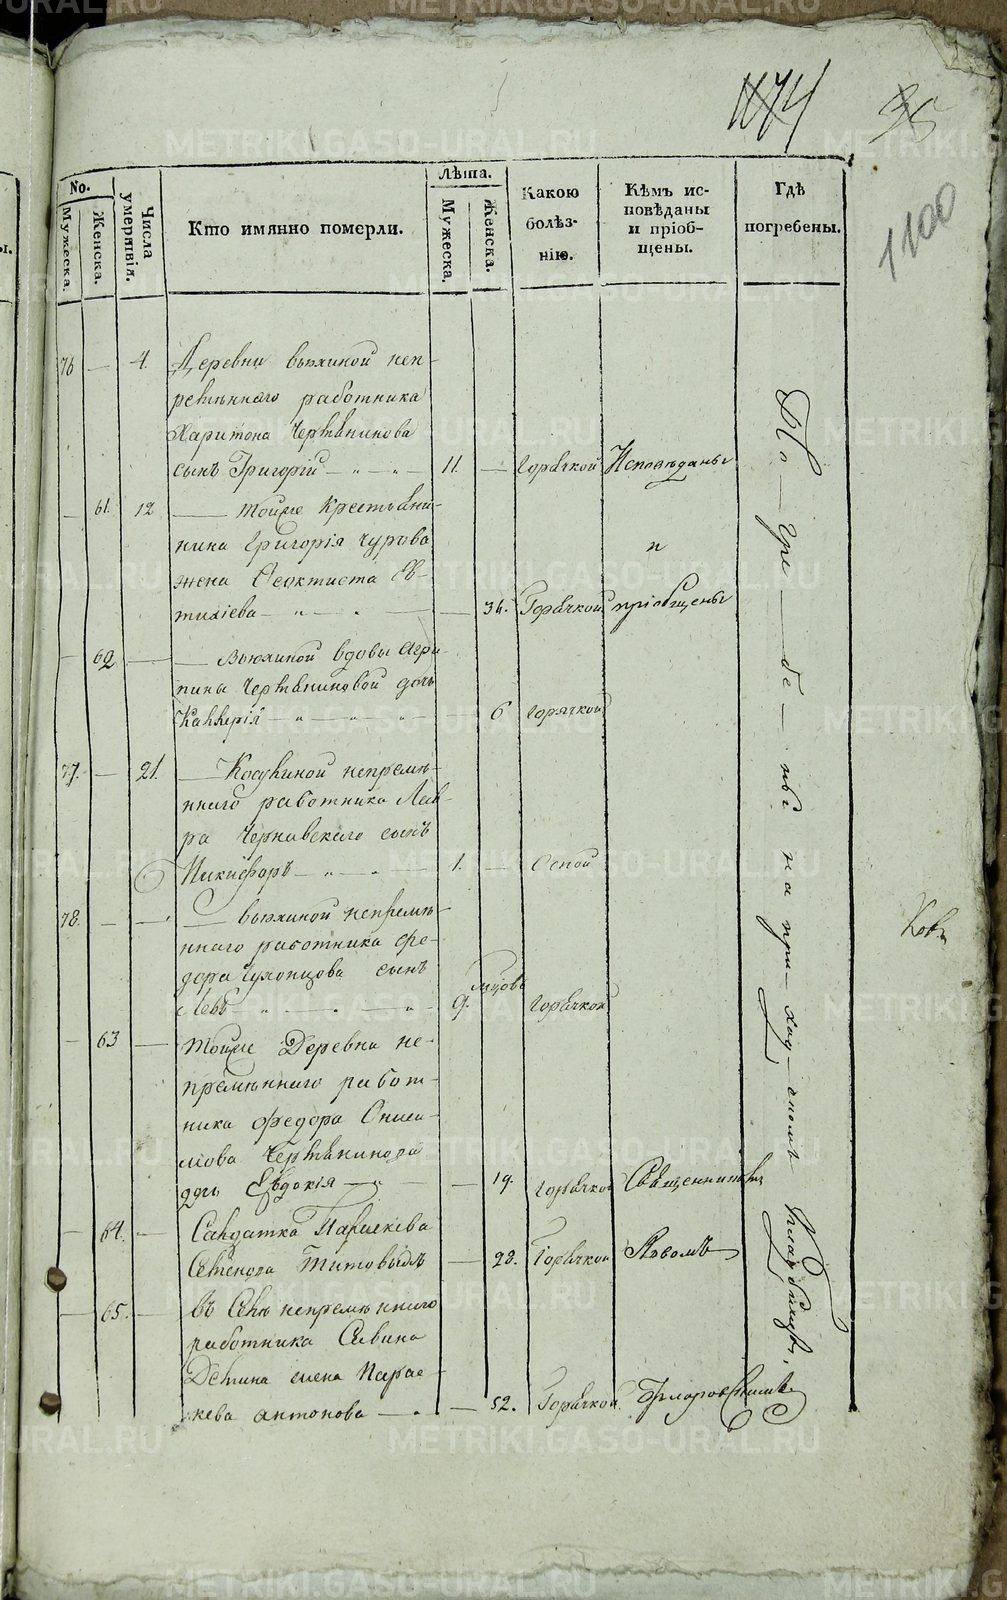 1174
35
1100
No.
Мужеска.
Женска.
Числа умертвія.
Кто имянно померли.
Лѣта.
Мужеска.
Женска.
Какою болѣз-
нію.
Кѣмъ ис-
повѣданы
и пріоб-
щены.
Гдѣ
погребены.
76 — 4. Деревни вьюхиной неп-
ремѣннаго работника
Харитона Черемисинова
сынъ Григорій — 11. — Горячкой Исповѣданы
— 61. 12 — Тойже Крестьяни-
нина Григорія Чурова
и
жена Феоктиста Ев-
тихіева — — 36. Горячкой пріобщены
— 62 — — Вьюхиной вдовы Агри-
пины дочь
— 6 Горячкой
77. — 21. — Косулиной непремѣ-
ннаго работника Лав-
ра Чернавскаго сынъ
Никифоръ — 1. — Оспой
78. — — — вьюхиной непремѣ-
ннаго работника Фе-
дора сынъ
Левъ — 9. Горячкой
— 63 — Тойже Деревни не-
премѣннаго работ-
ника Федора Ониси-
мова
дочь Евдокія — — 19. Горячкой Священникомъ
— 64. — Салдатка Параскева
Семенова — 28. Горячкой
— 65. — въ Селѣ непремѣннаго
работника Савина
жена Парас-
кева Антонова — — 52. Горячкой
По — гре — бе — ны на при — ход — скомъ кладбищѣ.